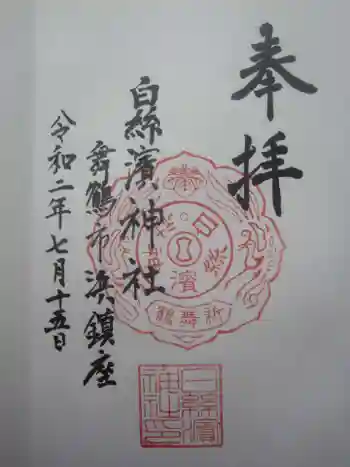 奉拝
白絲濱神社
舞鶴市浜鎮座
令和二年七月十五日
白絲濱
新舞鶴
白絲濱神社印